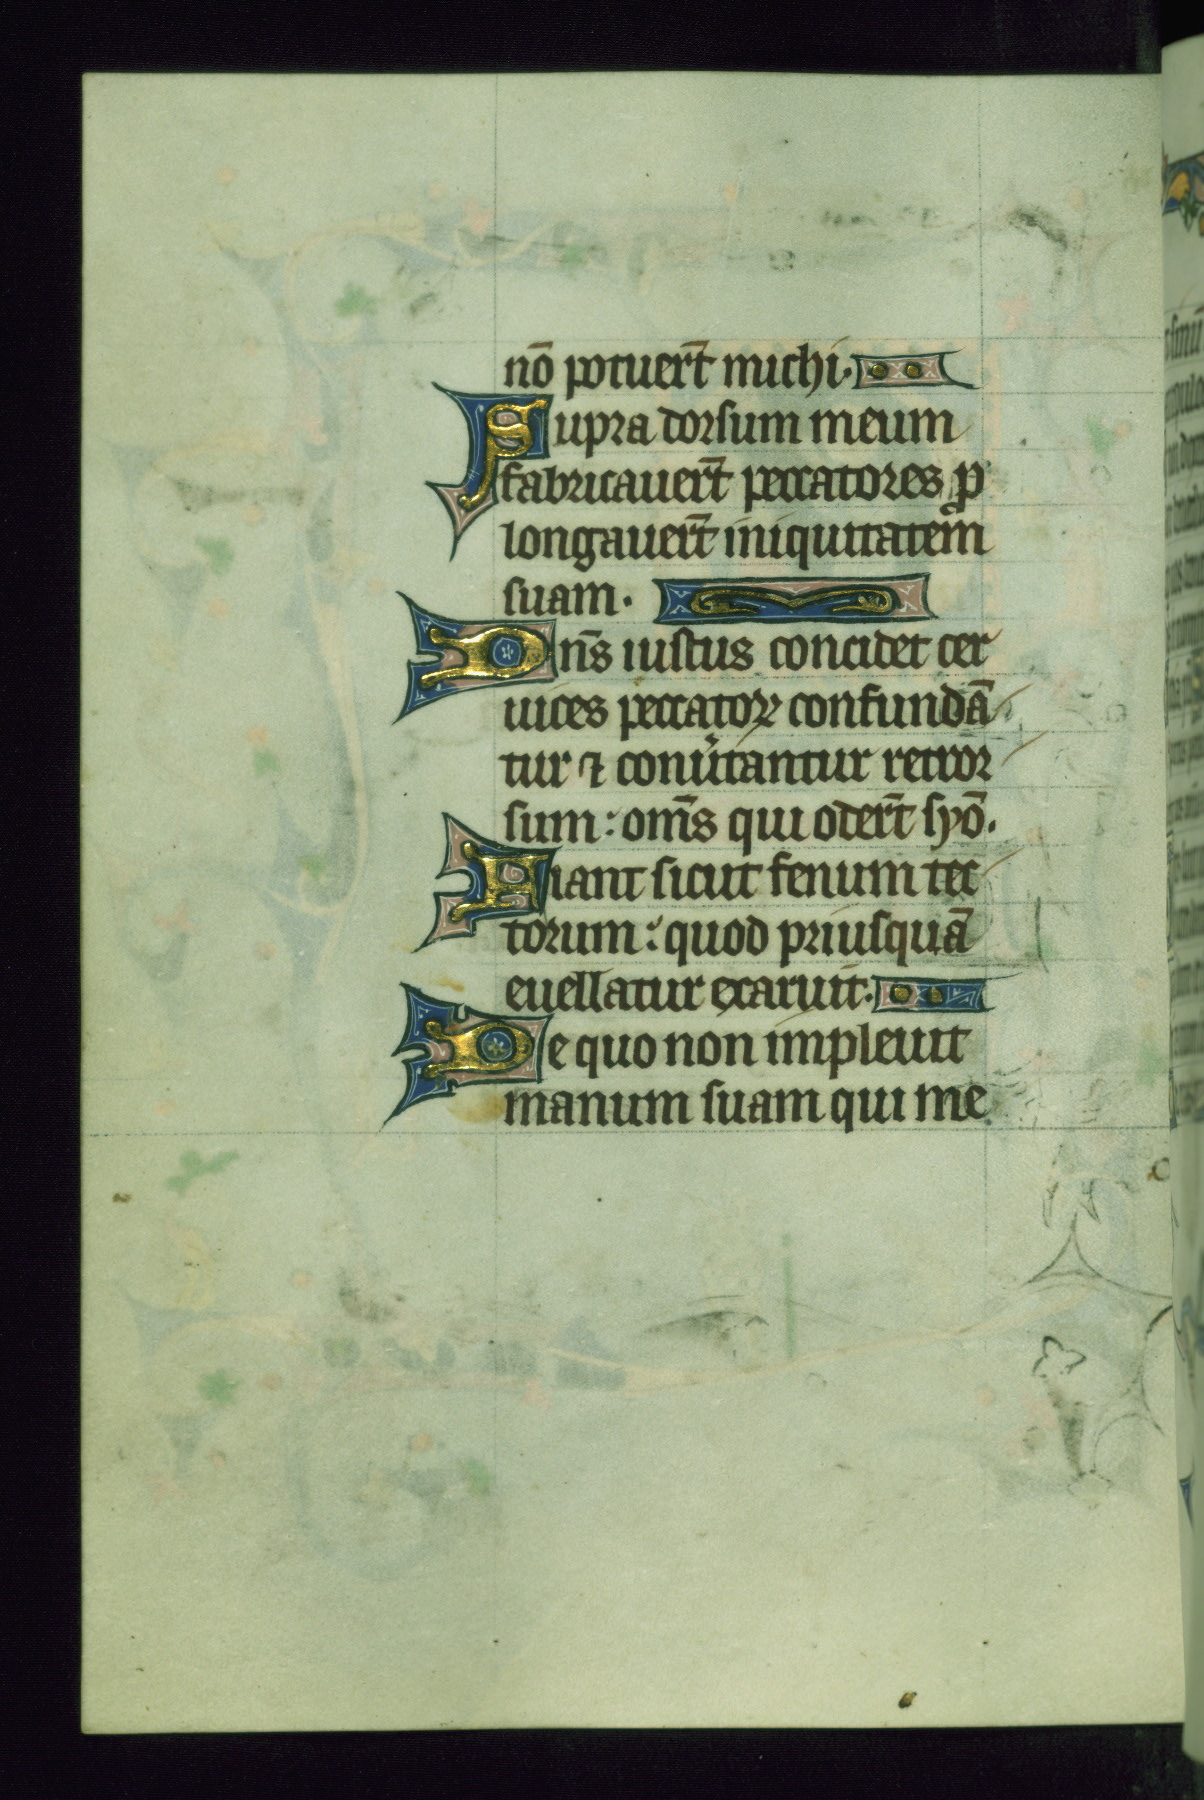 nō potuer̄t michi·
Supra dorsum meum
fabricauer̄t peccatores ꝓ
longauer̄t iniquitatem
suam·
Dn̄s iustus concidet cer
uices peccatoꝝ confundā
tur ⁊ conu̓tantur retror
sum: om̄s qui oder̄t syō.
Fiant sicut fenum tec
torum: quod priusquā
euellatur exaruit·
De quo non impleuit
manum suam qui me